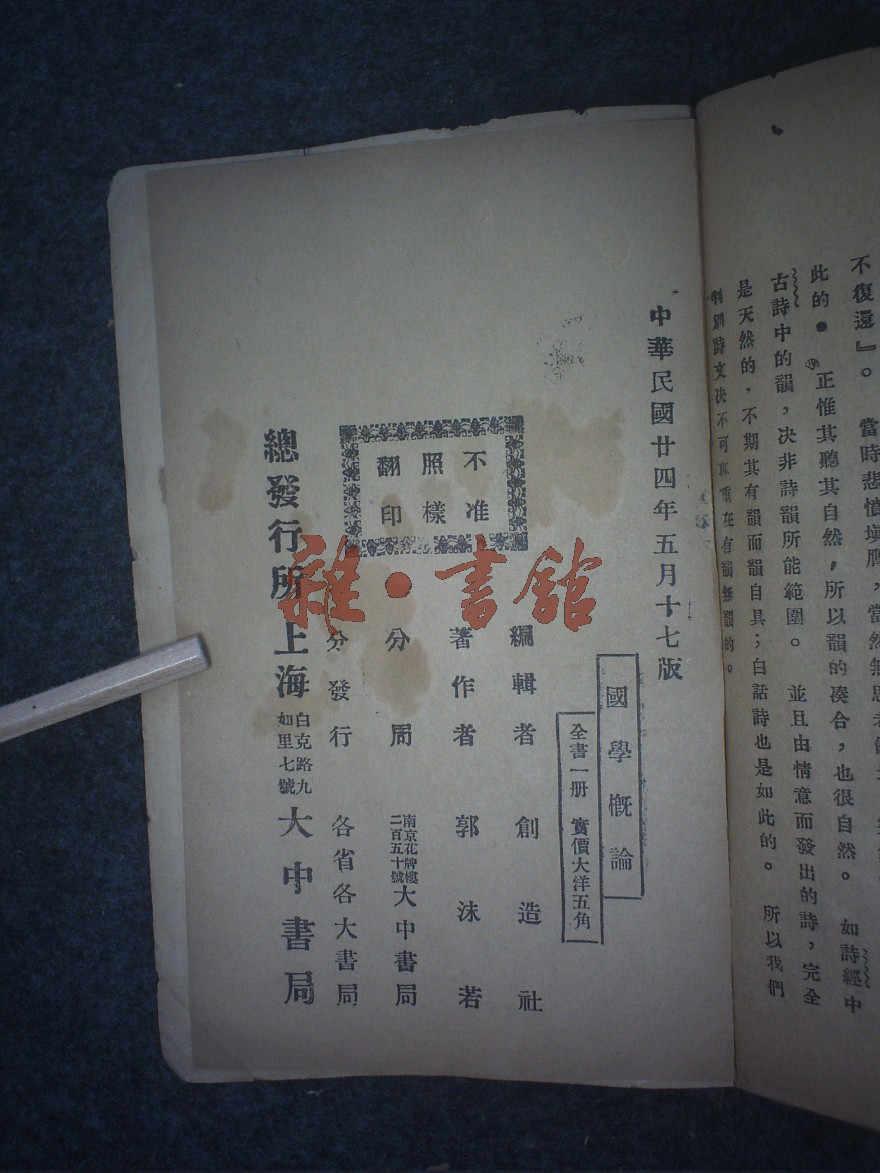 不復還』。 當時悲憤填膺，當然無思
此的● 正惟其聽其自然，所以韻的凑合，也很自然。 如詩經中
古詩中的韻，决非詩韻所能範圍。 並且由情意而發出的詩，完全
是天然的，不期其有韻而韻自具；白話詩也是如此的。 所以我們
判別詩文决不可 在有韻無韻的。
中華民國廿四年五月十七版
國學概論
全書一册 實價大洋五角
不准
照樣
翻印
編輯者 創造社
著作者 郭沫若
分局 南京花牌樓二百五十號 大中書局
分發行 各省各大書局
總發行所 上海 白克路九如里七號 大中書局
雜·書館